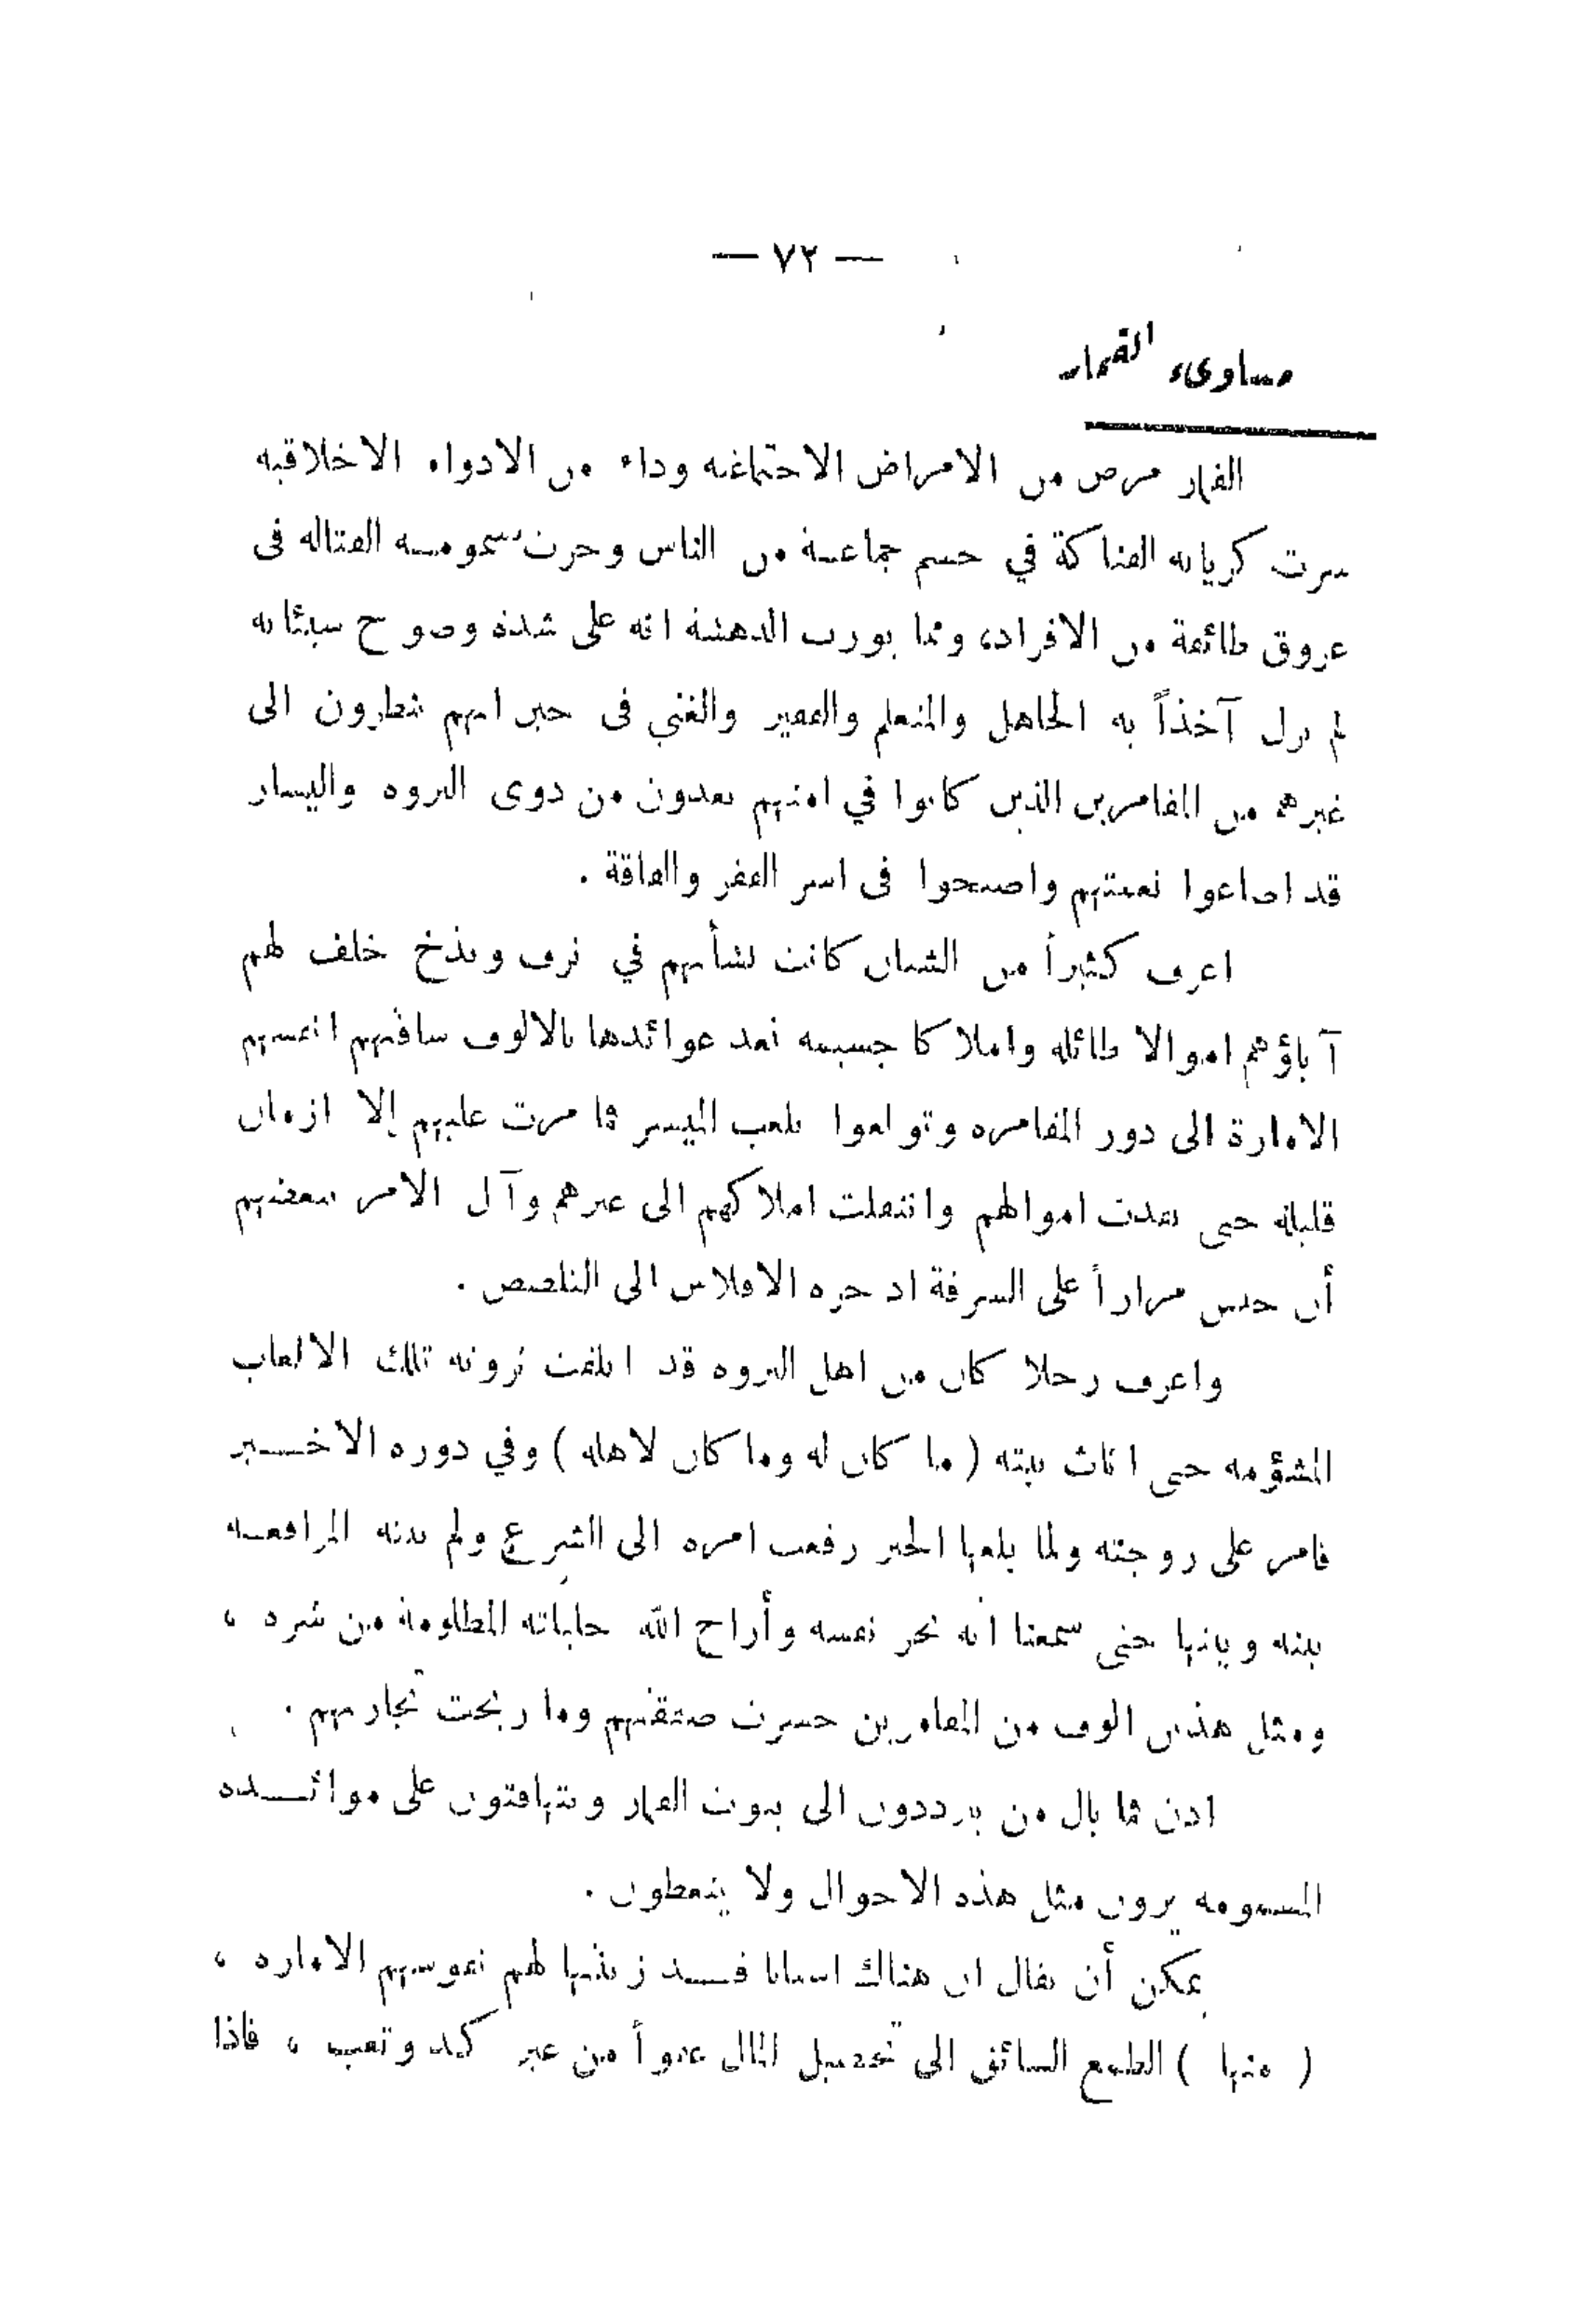 — ٧٢ —
مساوىء القمار
القمار مرض من الامراض الاجتماعية وداء من الادواء الاخلاقية
سرت كرياته الفتاكة في جسم جماعة من الناس وجرت سمومه القتالة فى
عروق طائفة من الافراد، ومما يورث الدهشة انه على شدة وضوح سيئاته
لم يزل آخذاً به الجاهل والمتعلم والفقير والغني فى حين انهم ينظرون الى
غيرهم من المقامرين الذين كانوا في امتهم يعدون من ذوى الثروة واليسار
قد اضاعوا نعمتهم واصبحوا فى اسر الفقر والفاقة .
اعرف كثيراً من الشبان كانت نشأتهم في ترف وبذخ خلف لهم
آباؤهم اموالا طائلة واملاكا جسيمة تعد عوائدها بالالوف ساقتهم انفسهم
الامارة الى دور المقامرة وتولعوا بلعب الميسر فما مرت عليهم إلا ازمان
قليلة حتى نفدت اموالهم وانتقلت املاكهم الى غيرهم وآل الامر ببعضهم
أن حبس مراراً على السرقة اذ جره الافلاس الى التلصص .
واعرف رجلا كان من اهل الثروة قد اتلفت ثروته تلك الالعاب
المشؤمه حتى اثاث بيته ( ما كان له وما كان لاهله ) وفي دوره الاخير
قامر على زوجته ولما بلغها الخبر رفعت امره الى الشرع ولم تنته المرافعة
بينه وبينها حتى سمعنا انه نحر نفسه وأراح الله حليلته المظلومة من شره ،
ومثل هذين الوف من المقامرين خسرت صفقتهم وما ربحت تجارتهم .
اذن فما بال من يترددون الى بيوت القمار ويتهافتون على موائده
المسمومه يرون مثل هذه الاحوال ولا يتعظون .
يمكن أن يقال ان هناك اسبابا قد زينتها لهم نفوسهم الاماره ،
( منها ) الطمع السائق الى تحصيل المال عفواً من غير كد وتعب ، فاذا